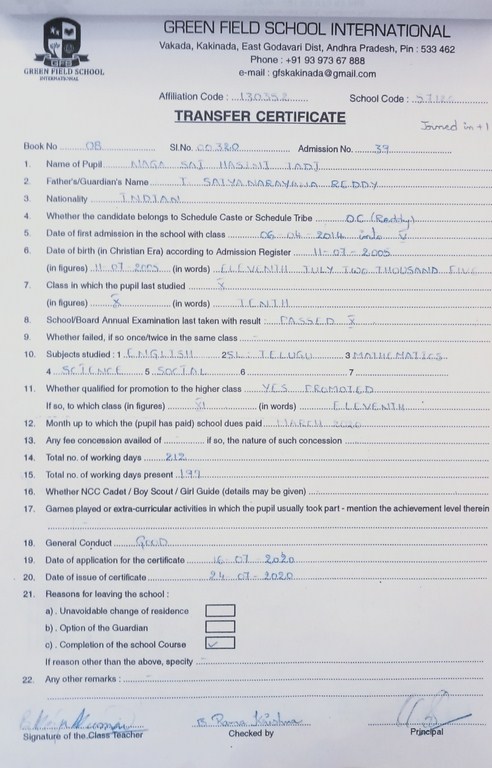 GREEN FIELD SCHOOL INTERNATIONAL
Vakada, Kakinada, East Godavari Dist, Andhra Pradesh, Pin : 533 462
Phone : +91 93 973 67 888
e-mail : gfskakinada@gmail.com
GFS
GREEN FIELD SCHOOL
INTERNATIONAL
Affiliation Code : 130352 School Code :
TRANSFER CERTIFICATE
Joined in +1
Book No 08 Sl.No. 00320 Admission No. 39
1. Name of Pupil NAGA SAI HASINI TADI
2. Father's/Guardian's Name T SATYANARAYANA REDDY
3. Nationality INDIAN
4. Whether the candidate belongs to Schedule Caste or Schedule Tribe O.C (Reddy)
5. Date of first admission in the school with class 06.04.2014 into V
6. Date of birth (in Christian Era) according to Admission Register 11-07-2005
(in figures) 11-07-2005 (in words) ELEVENTH JULY TWO THOUSAND FIVE
7. Class in which the pupil last studied X
(in figures) X (in words) TENTH
8. School/Board Annual Examination last taken with result : PASSED X
9. Whether failed, if so once/twice in the same class
10. Subjects studied : 1 ENGLISH 2 SL : TELUGU 3 MATHEMATICS
4 SCIENCE 5 SOCIAL 6 7
11. Whether qualified for promotion to the higher class YES PROMOTED
If so, to which class (in figures) XI (in words) ELEVENTH
12. Month up to which the (pupil has paid) school dues paid MARCH 2020
13. Any fee concession availed of if so, the nature of such concession
14. Total no. of working days 212
15. Total no. of working days present 199
16. Whether NCC Cadet / Boy Scout / Girl Guide (details may be given)
17. Games played or extra-curricular activities in which the pupil usually took part - mention the achievement level therein
18. General Conduct GOOD
19. Date of application for the certificate 16-07-2020
20. Date of issue of certificate 24-07-2020
21. Reasons for leaving the school :
a) . Unavoidable change of residence
b) . Option of the Guardian
c) . Completion of the school Course ✓
If reason other than the above, specify
22. Any other remarks :
B Rama Krishna
Signature of the Class Teacher Checked by Principal